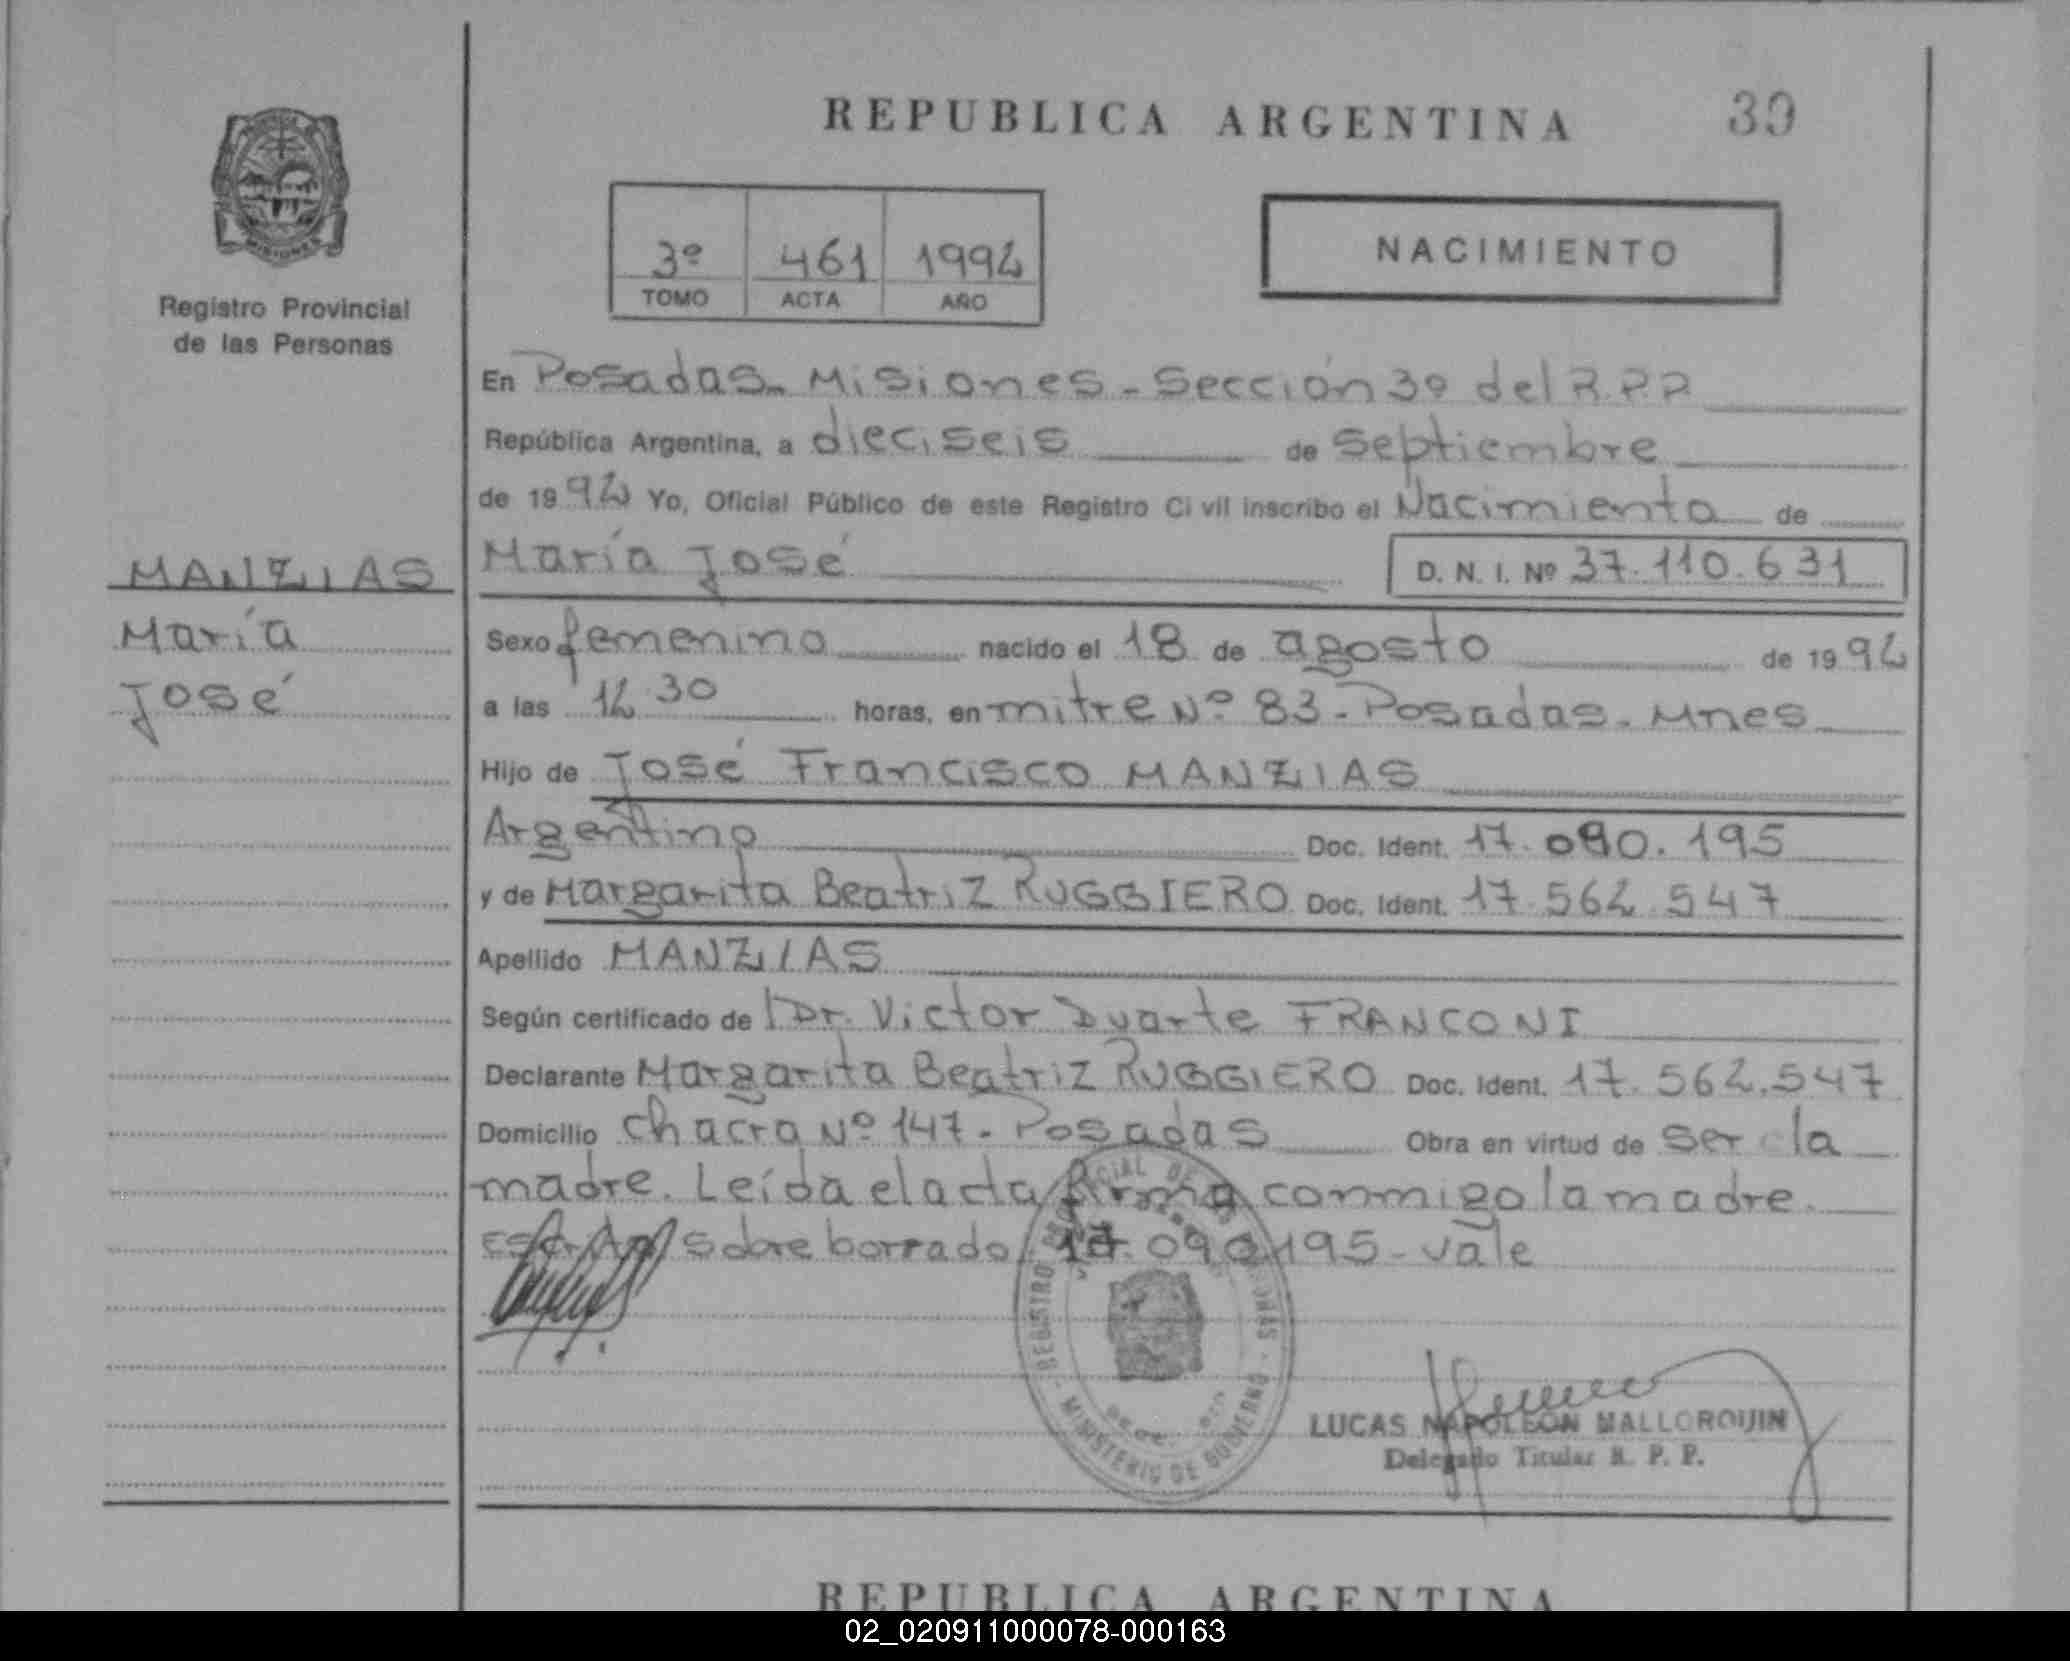 REPUBLICA ARGENTINA 39
MISIONES
Registro Provincial
de las Personas
3º 461 1992
TOMO ACTA AÑO
NACIMIENTO
En Posadas - Misiones - Sección 3º del R.P.P
República Argentina, a dieciseis de septiembre
de 1992 Yo, Oficial Público de este Registro Civil inscribo el Nacimiento de
MANZIAS
María
José
María José D. N. I. Nº 37.110.631
Sexo femenino nacido el 18 de agosto de 1992
a las 12 30 horas, en mitre Nº 83 - Posadas - Mnes
Hijo de José Francisco MANZIAS
Argentino Doc. Ident. 17.090.195
y de Margarita Beatriz RUGGIERO Doc. Ident. 17.562.547
Apellido MANZIAS
Según certificado de Dr. Victor Duarte FRANCONI
Declarante Margarita Beatriz RUGGIERO Doc. Ident. 17.562.547
Domicilio Chacra Nº 147 - Posadas Obra en virtud de ser la
madre. Leída el acta firma conmigo la madre.
Escrito sobre borrado 17.090.195 - vale
REGISTRO PROVINCIAL DE LAS PERSONAS - MINISTERIO DE GOBIERNO -
LUCAS NAPOLEON MALLORQUIN
Delegado Titular R. P. P.
REPUBLICA ARGENTINA
02_020911000078-000163